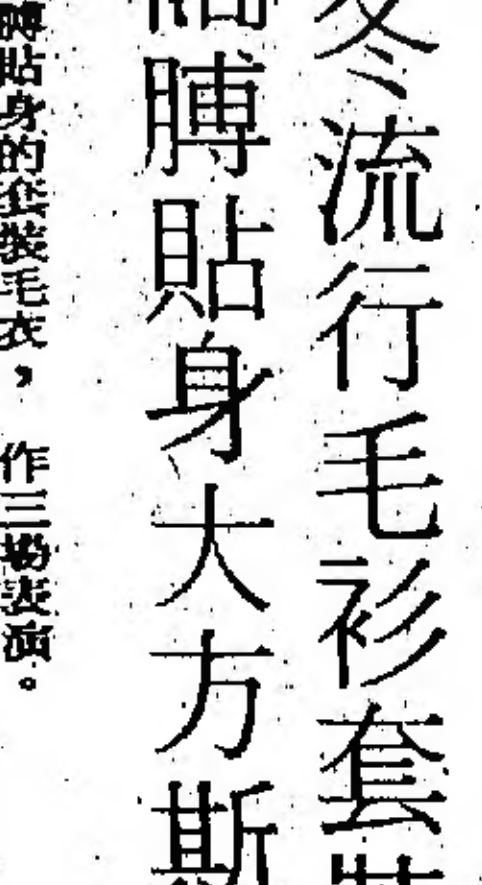 冬流行毛衫套裝
膊貼身大方斯
膊貼身的套裝毛衣，作三場表演。